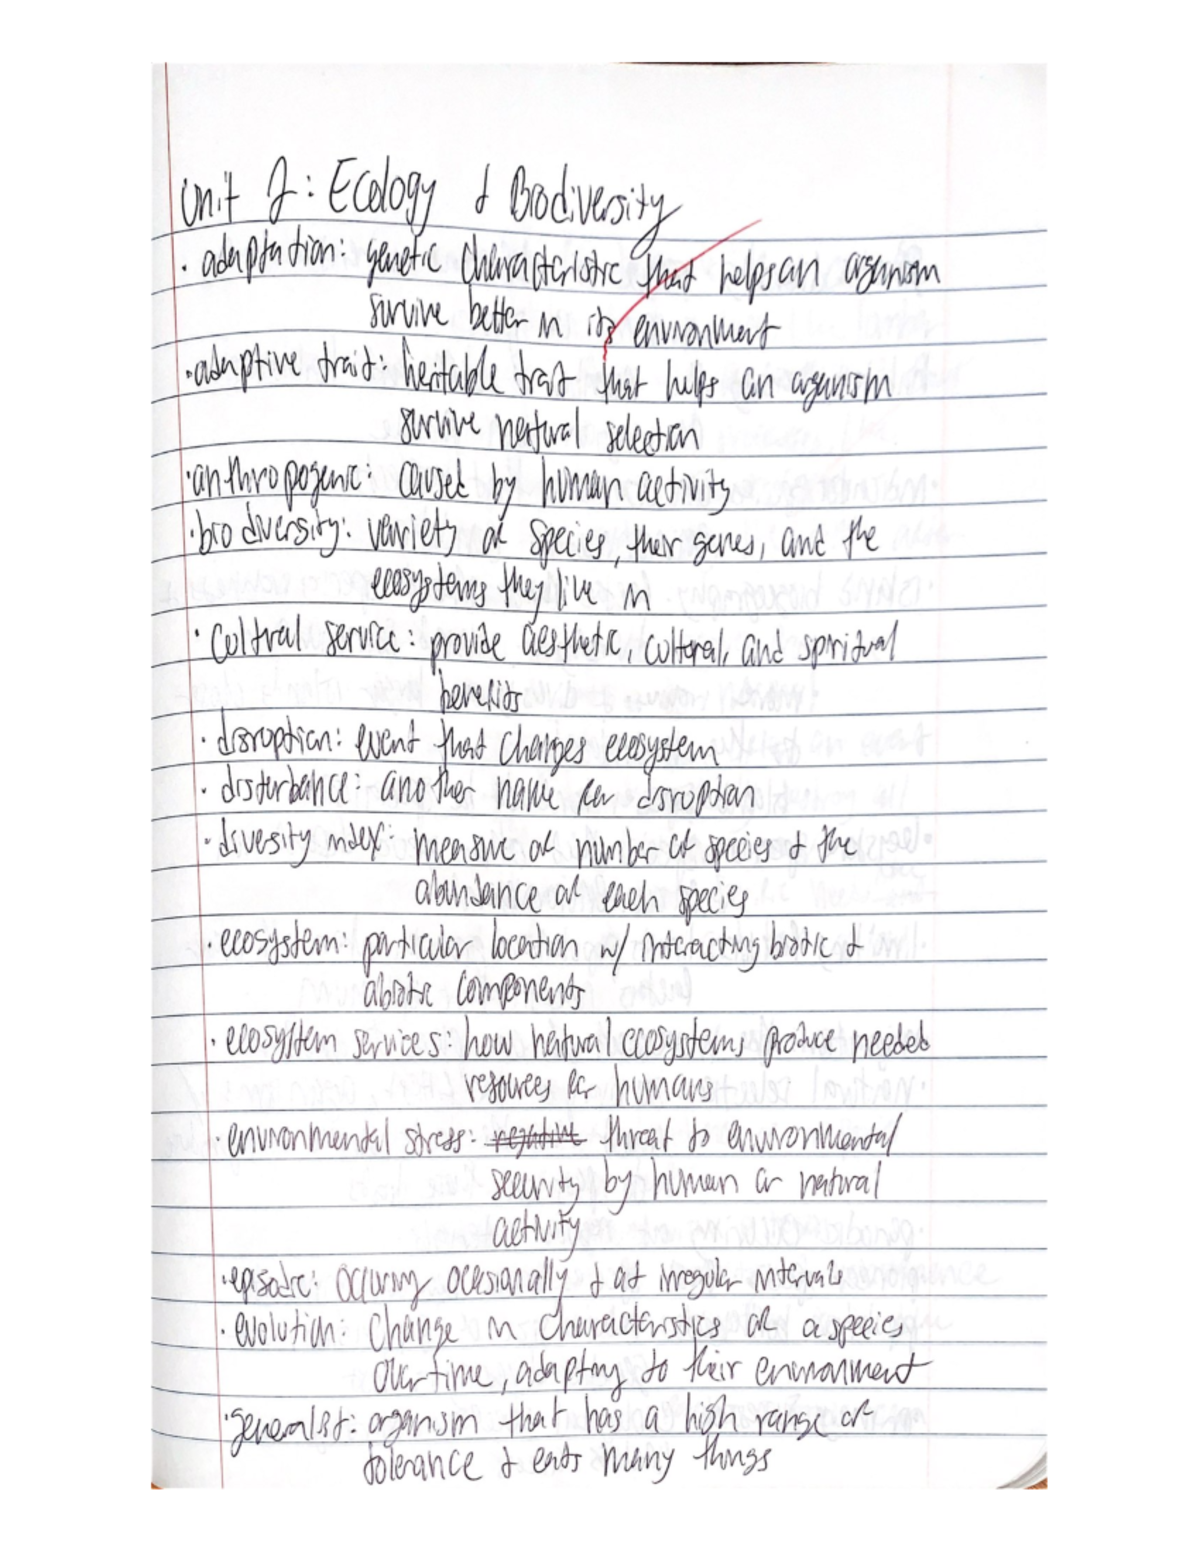 Unit 2: Ecology & Biodiversity
· adaptation: genetic characteristic that helps an organism
survive better in its environment
· adaptive trait: heritable trait that helps an organism
survive natural selection
· anthropogenic: caused by human activity
· biodiversity: variety of species, their genes, and the
ecosystems they live in
· cultral service: provide aesthetic, cultural, and spiritual
benefits
· disruption: event that changes ecosystem
· disturbance: another name for disruption
· diversity index: measure of number of species & the
abundance of each species
· ecosystem: particular location w/ interacting biotic &
abiotic components
· ecosystem services: how natural ecosystems produce needed
resources for humans
· environmental stress: negative threat to environmental
security by human or natural
activity
· episodic: occuring occasionally & at irregular intervals
· evolution: change in characteristics of a species
over time, adapting to their environment
· generalist: organism that has a high range of
tolerance & eats many things